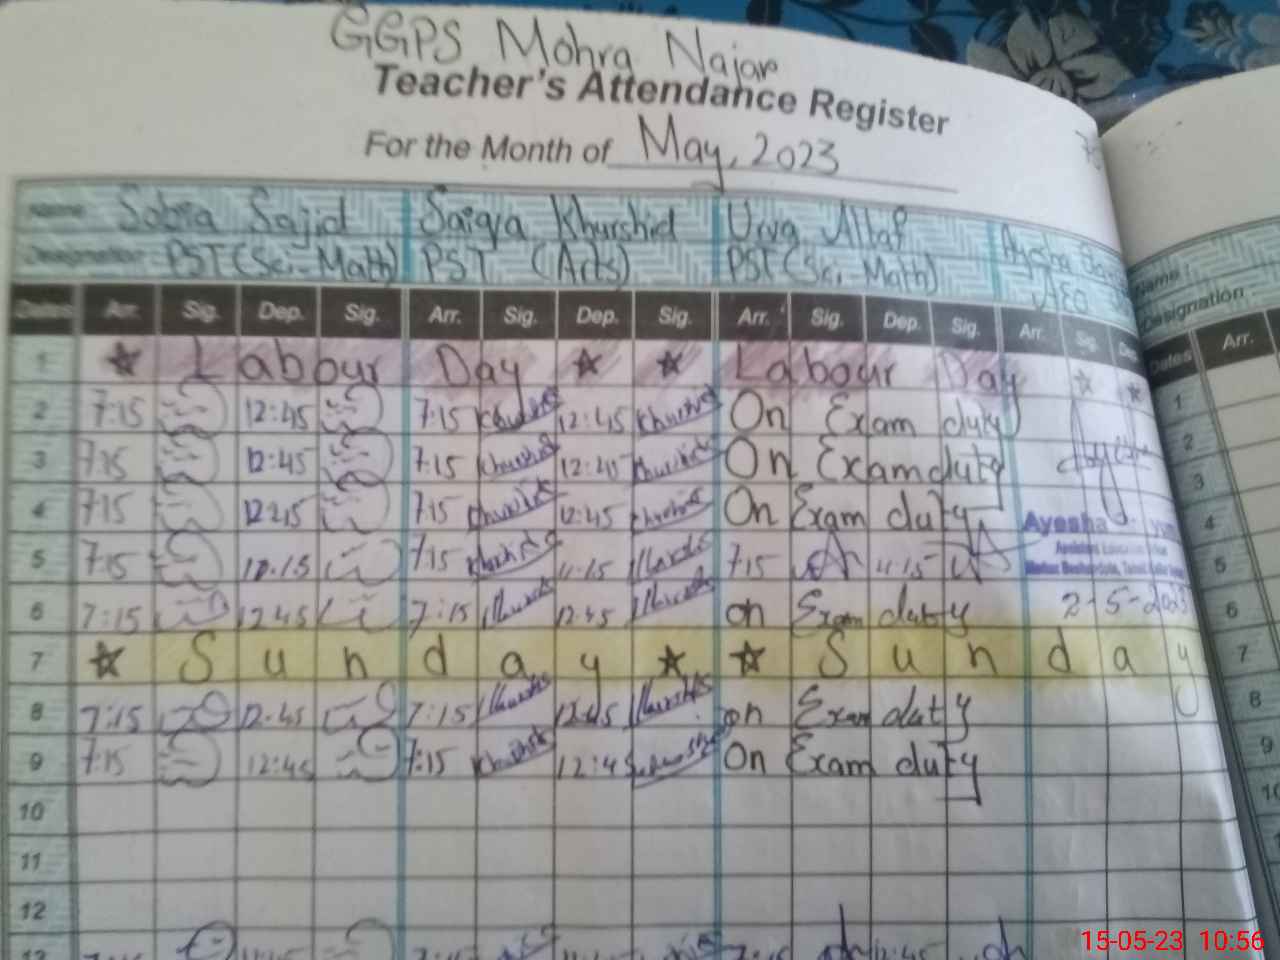 GGPS Mohra Najar
Teacher's Attendance Register
For the Month of May, 2023
Name Sobia Sajid Saiqa Khurshid Urva Altaf
Designation PST (Sci-Math) PST (Arts) PST (Sci. Math) AEO
Name:
Designation
Dates Arr. Sig. Dep. Sig. Arr. Sig. Dep. Sig. Arr. Sig. Dep. Sig. Arr. Sig. Dep.
Dates Arr.
1 ★ Labour Day ★ ★ Labour Day ★ ★ 1
2 7:15 12:45 7:15 Khurshid 12:45 Khurshid On Exam duty 2
3 7:15 12:45 7:15 Khurshid 12:45 Khurshid On Exam duty 3
4 7:15 12:45 7:15 Khurshid 12:45 Khurshid On Exam duty 4
Ayesha
5 7:15 7:15 Khurshid 11:15 Khurshid 7:15 11:15 5
6 7:15 12:45 7:15 Khurshid 12:45 Khurshid on Exam duty 2-5-2023 6
7 ★ Sunday ★ ★ Sunday 7
8 7:15 12:45 7:15 Khurshid 12:45 Khurshid on Exam duty 8
9 7:15 12:45 7:15 Khurshid 12:45 On Exam duty 9
10 10
11
12
15-05-23 10:56